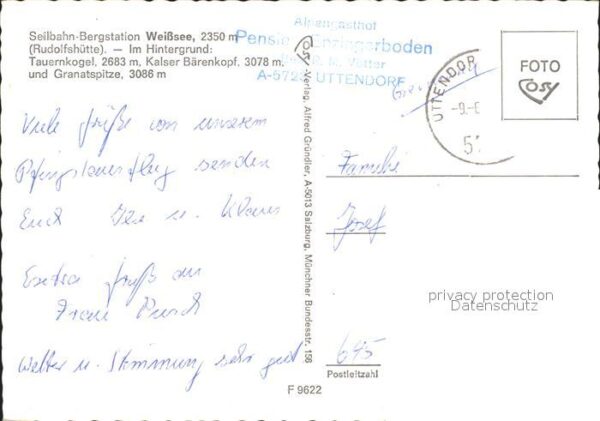 Seilbahn-Bergstation Weißsee, 2350 m
(Rudolfshütte). — Im Hintergrund:
Tauernkogel, 2683 m, Kalser Bärenkopf, 3078 m,
und Granatspitze, 3086 m
Alpengasthof
Pension Enzingerboden
A-5723 UTTENDORF
UTTENDORF
-9.-6
57
FOTO
COSY
COSY-Verlag, Alfred Gründler, A-5013 Salzburg, Münchner Bundesstr. 156
Viele Grüße von unserem
Pfingstausflug senden
Euch Ilse u. Klaus
Extra Gruß an
Frau Pusch
Wetter u. Stimmung sehr gut
Familie
Josef
645
Postleitzahl
F 9622
privacy protection
Datenschutz